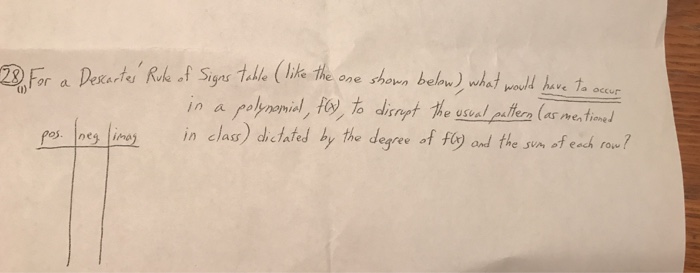 28) For a Descartes' Rule of Signs table (like the one shown below), what would have to occur
(1)
in a polynomial, f(x), to disrupt the usual pattern (as mentioned
in class) dictated by the degree of f(x) and the sum of each row?
pos. neg imag